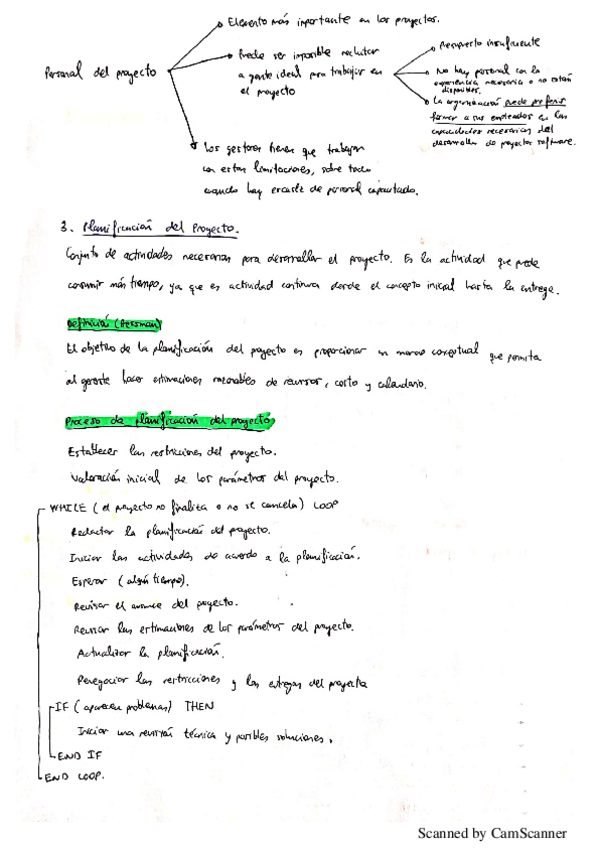 Elemento más importante en los proyectos.
Personal del proyecto
Puede ser imposible reclutar
a gente ideal para trabajar en
el proyecto
Presupuesto insuficiente
No hay personal con la
experiencia necesaria o no están
disponibles.
La organización puede preferir
formar a sus empleados en las
capacidades necesarias del
desarrollo de proyectos software.
Los gestores tienen que trabajar
con estas limitaciones, sobre todo
cuando hay escasez de personal capacitado.
3. Planificación del Proyecto.
Conjunto de actividades necesarias para desarrollar el proyecto. Es la actividad que puede
consumir más tiempo, ya que es actividad continua desde el concepto inicial hasta la entrega.
Definición (Pressman)
El objetivo de la planificación del proyecto es proporcionar un marco conceptual que permita
al gerente hacer estimaciones razonables de recursos, costo y calendario.
Proceso de planificación del proyecto
Establecer las restricciones del proyecto.
Valoración inicial de los parámetros del proyecto.
WHILE (el proyecto no finaliza o no se cancela) LOOP
Redactar la planificación del proyecto.
Iniciar las actividades de acuerdo a la planificación.
Esperar (algún tiempo).
Revisar el avance del proyecto.
Revisar las estimaciones de los parámetros del proyecto.
Actualizar la planificación.
Renegociar las restricciones y las entregas del proyecto
IF (aparecen problemas) THEN
Iniciar una revisión técnica y posibles soluciones.
END IF
END LOOP.
Scanned by CamScanner